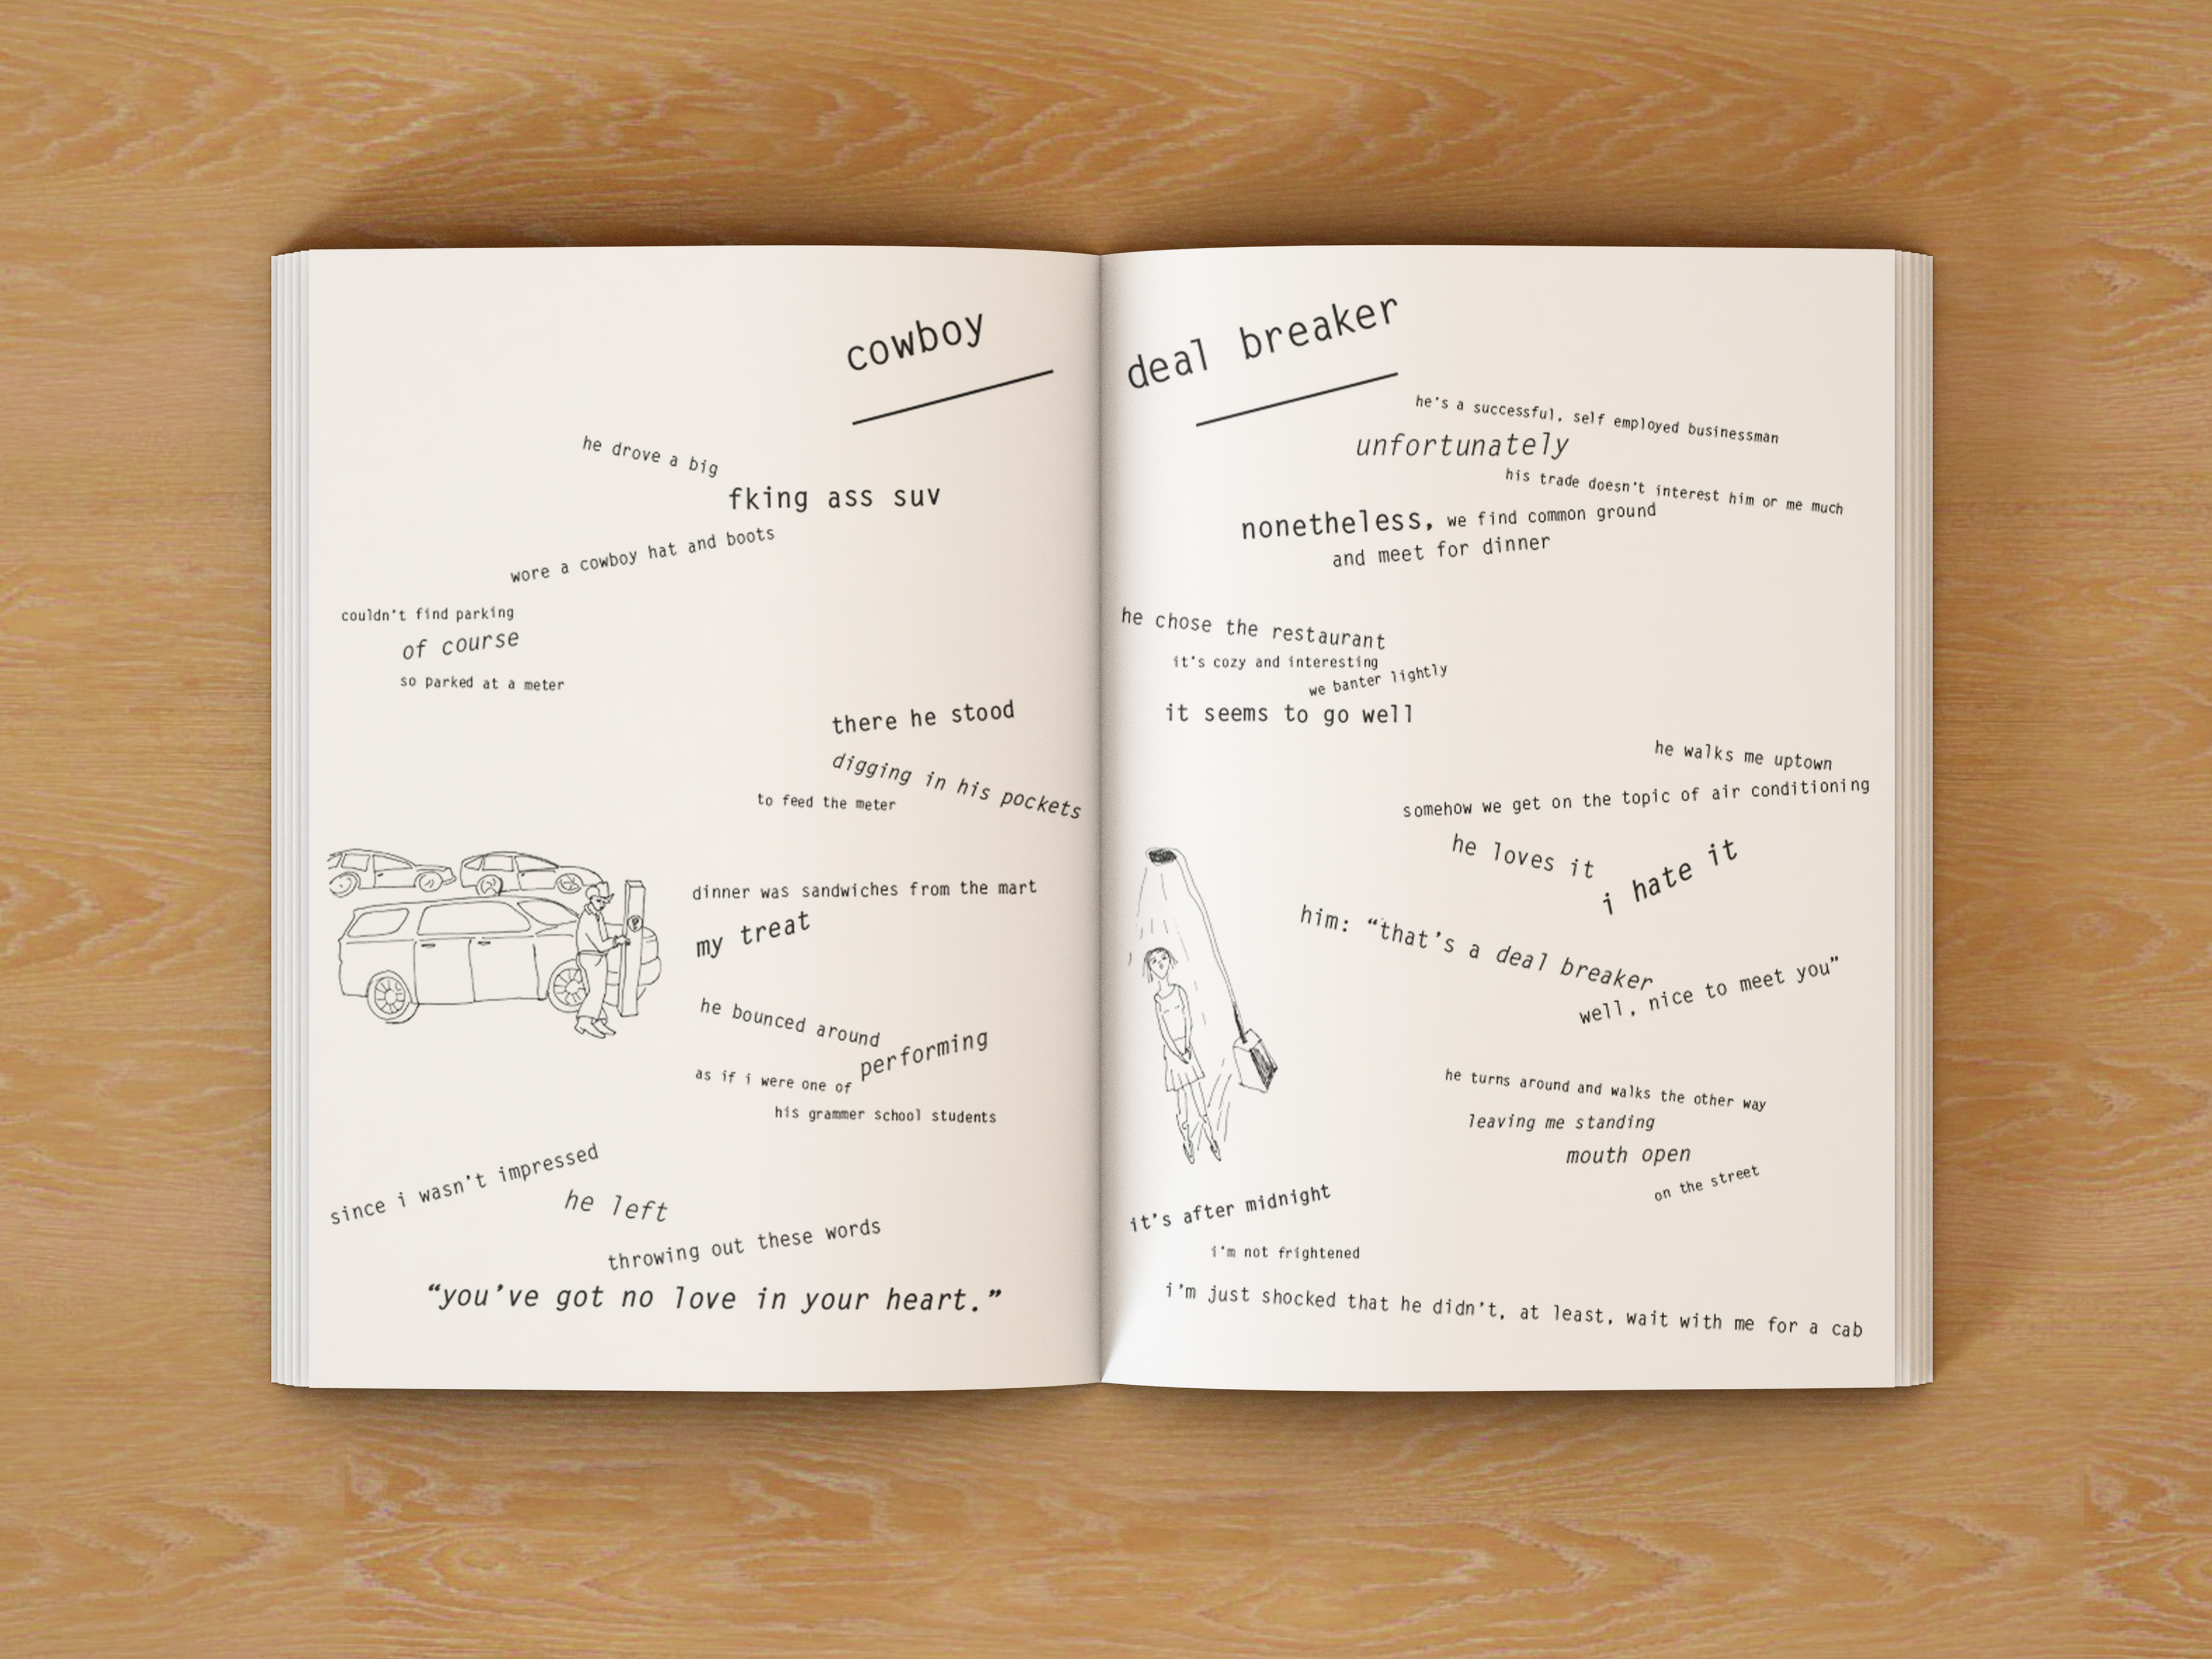 cowboy
he drove a big
fking ass suv
wore a cowboy hat and boots
couldn't find parking
of course
so parked at a meter
there he stood
digging in his pockets
to feed the meter
dinner was sandwiches from the mart
my treat
he bounced around
performing
as if i were one of
his grammer school students
since i wasn't impressed
he left
throwing out these words
“you've got no love in your heart.”
deal breaker
he's a successful, self employed businessman
unfortunately
his trade doesn't interest him or me much
nonetheless, we find common ground
and meet for dinner
he chose the restaurant
it's cozy and interesting
we banter lightly
it seems to go well
he walks me uptown
somehow we get on the topic of air conditioning
he loves it
i hate it
him: “that's a deal breaker
well, nice to meet you”
he turns around and walks the other way
leaving me standing
mouth open
on the street
it's after midnight
i'm not frightened
i'm just shocked that he didn't, at least, wait with me for a cab